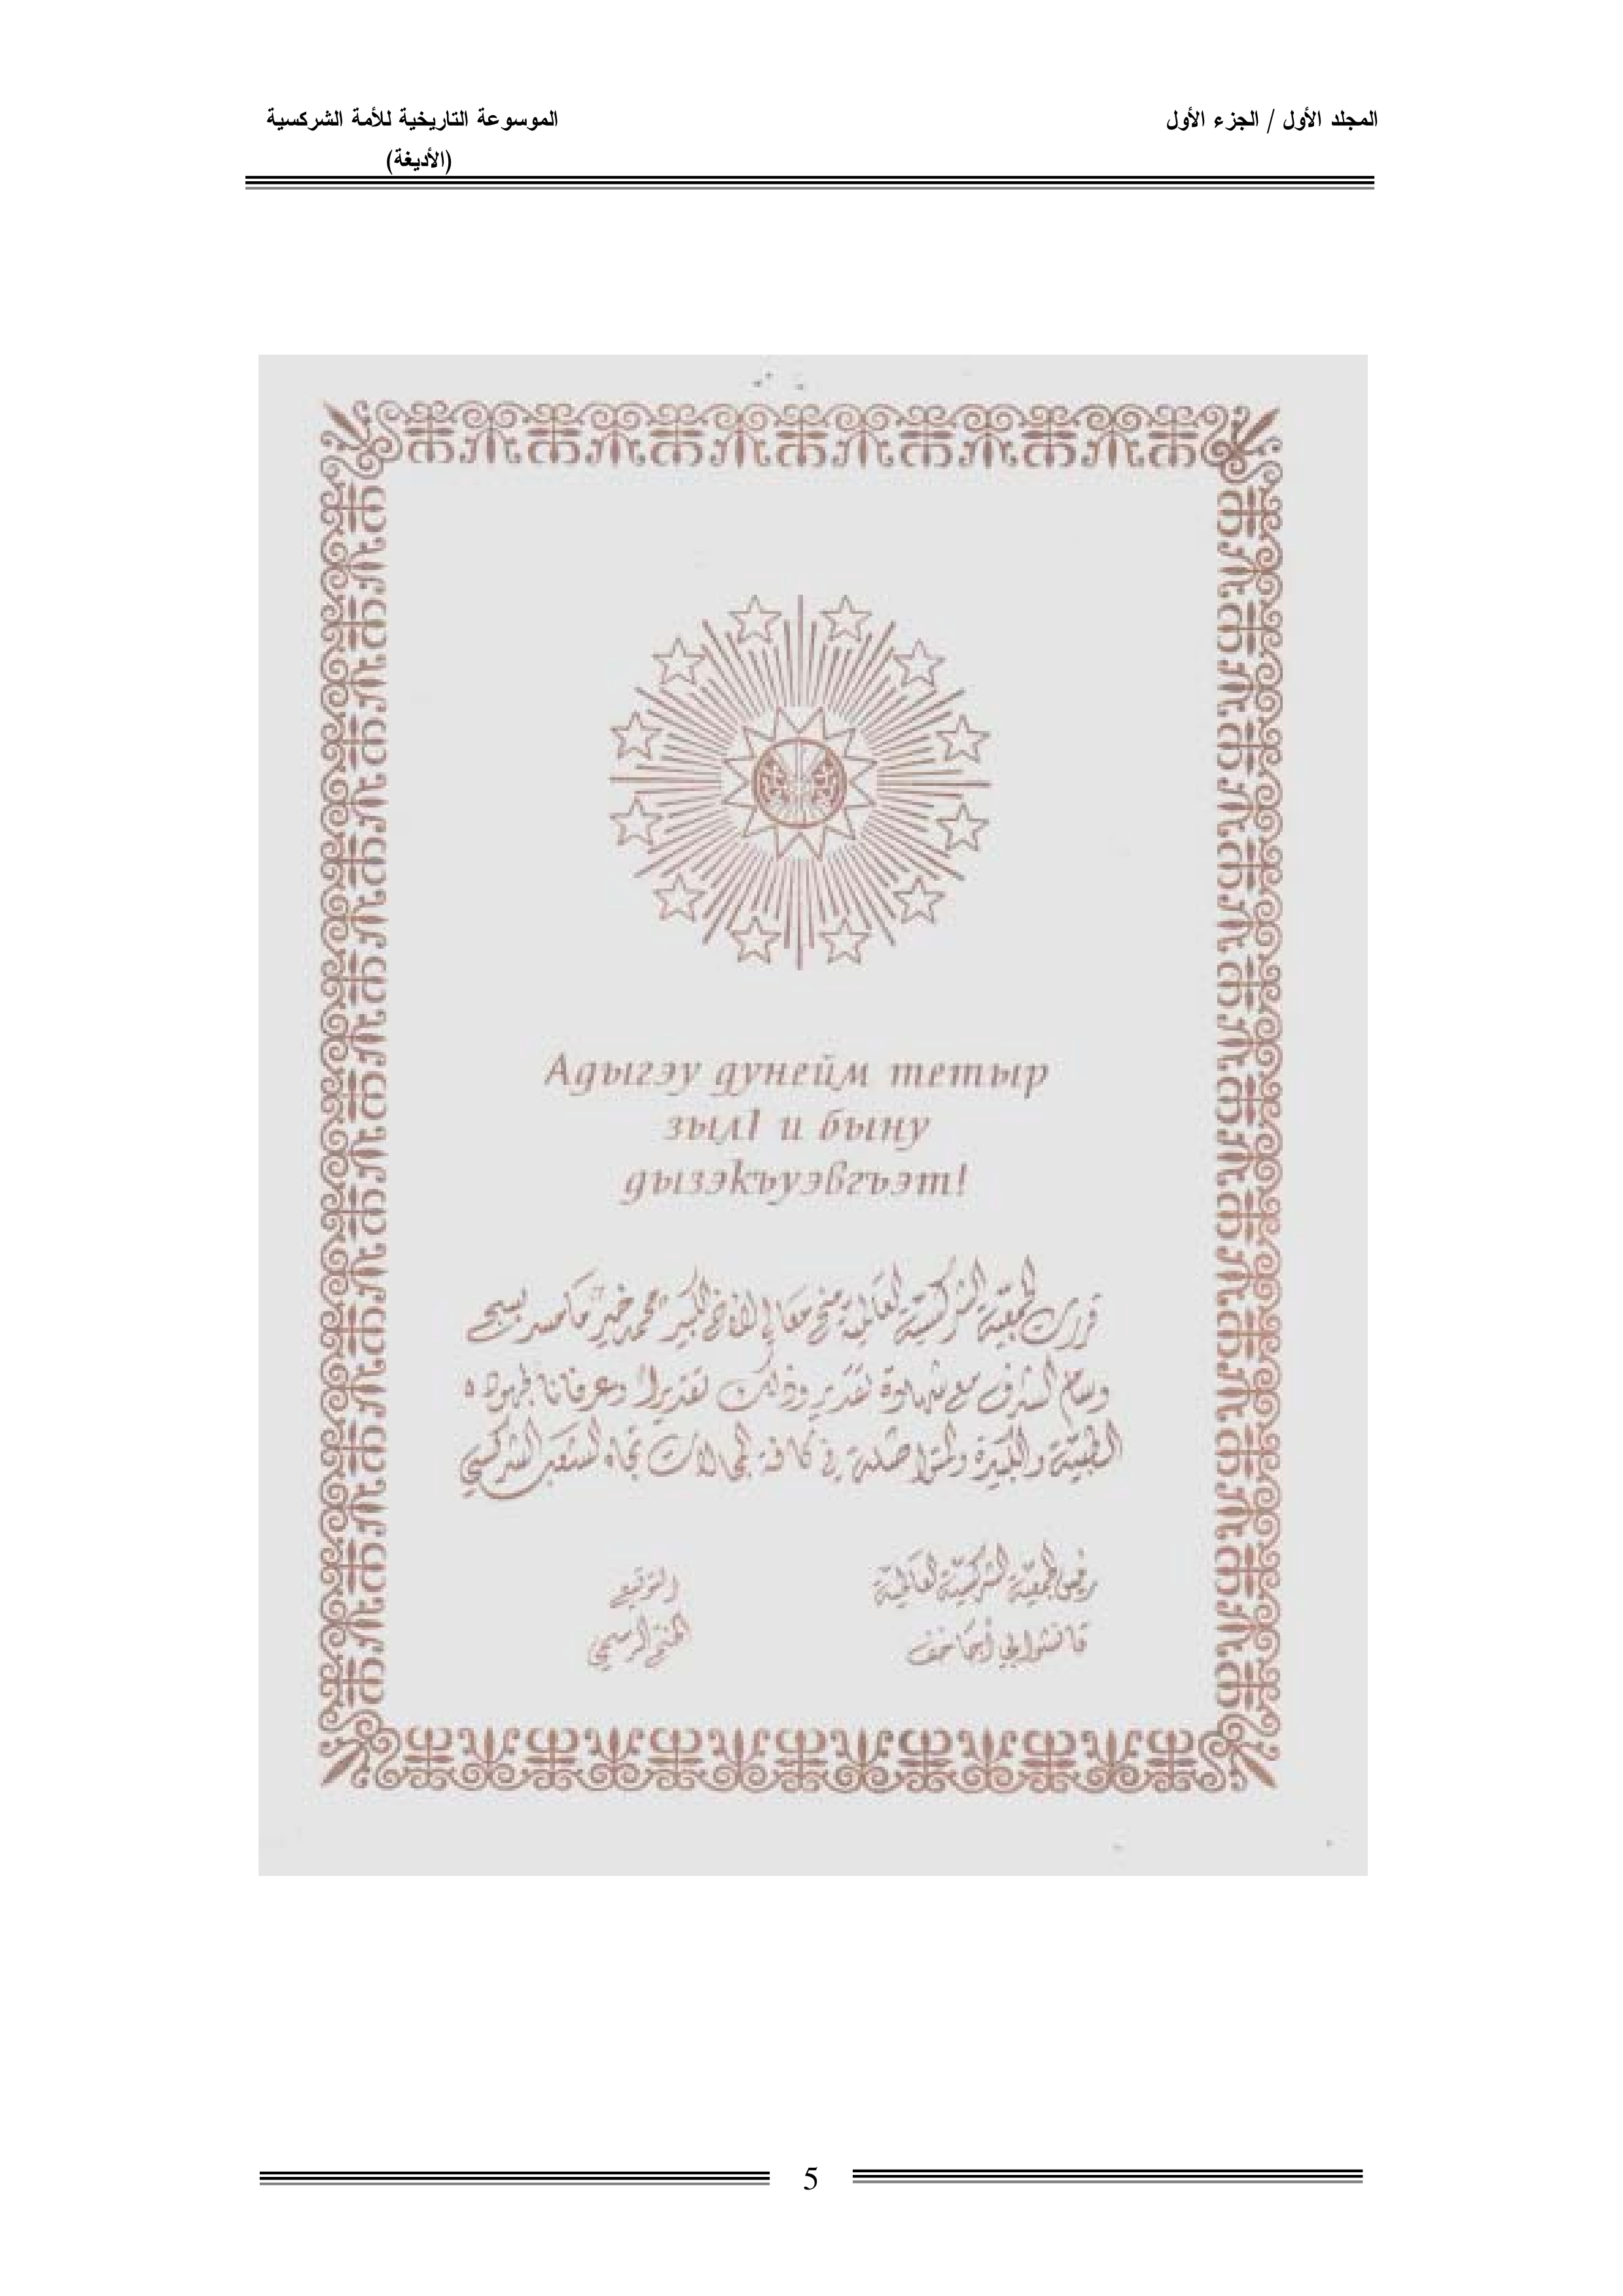 المجلد الأول / الجزء الأول
الموسوعة التاريخية للأمة الشركسية
(الأديغة)
Адыгэу дунейм тетыр
зылI и быну
дызэкъуэвгъэт!
قررت الجمعية الشركسية العالمية منح معالي الأخ الكبير "محمد خير" مامسر بسبح
وسام الشرف مع شهادة تقدير وذلك تقديراً وعرفاناً لجهوده
الطيبة والكبيرة والمتواصلة في كافة المجالات تجاه الشعب الشركسي
رئيس الجمعية الشركسية العالمية
التوقيع
الختم الرسمي
5